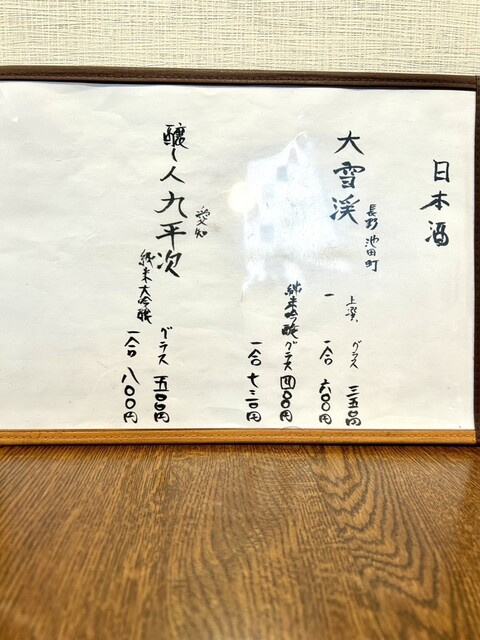 日本酒
大雪渓
長野 池田町
上撰 グラス 三五〇円
一 一合 六〇〇円
純米吟醸 グラス 四〇〇円
一合 七三〇円
醸し人九平次
愛知
純米大吟醸 グラス 五〇〇円
一合 八〇〇円